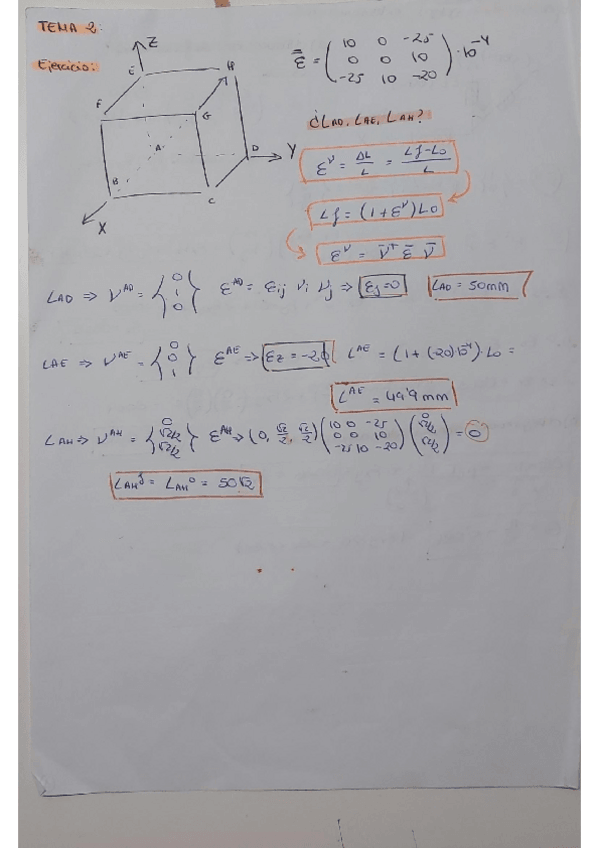 TEMA 2:
Ejercicio:
Z
E
H
F
G
A
D
Y
B
C
X
ε̿ = (10 0 -25
0 0 10
-25 10 -20) · 10⁻⁴
¿LAD, LAE, LAH?
εᵛ = ΔL/L = (Lf-Lo)/L
Lf = (1+εᵛ)Lo
εᵛ = v̄ᵀ ε̿ v̄
LAD ⇒ νᴬᴰ = {0 1 0} εᴬᴰ = εij νi νj ⇒ εy=0 LAD = 50mm
LAE ⇒ νᴬᴱ = {0 0 1} εᴬᴱ ⇒ εz = -20 Lᴬᴱ = (1+(-20)10⁻⁴)·Lo =
Lᴬᴱ = 49'9 mm
LAH ⇒ νᴬᴴ = {0 √2/2 √2/2} εᴬᴴ ⇒ (0, √2/2, √2/2) (10 0 -25 0 0 10 -25 10 -20) (0 √2/2 √2/2) = 0
LAHᶠ = LAHᵒ = 50√2